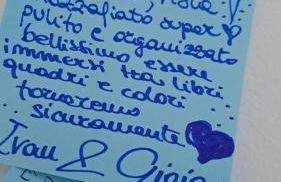 super
pulito e organizzato
bellissimo essere
immersi tra libri
quadri e colori
torneremo
sicuramente
Ivan & Gioia